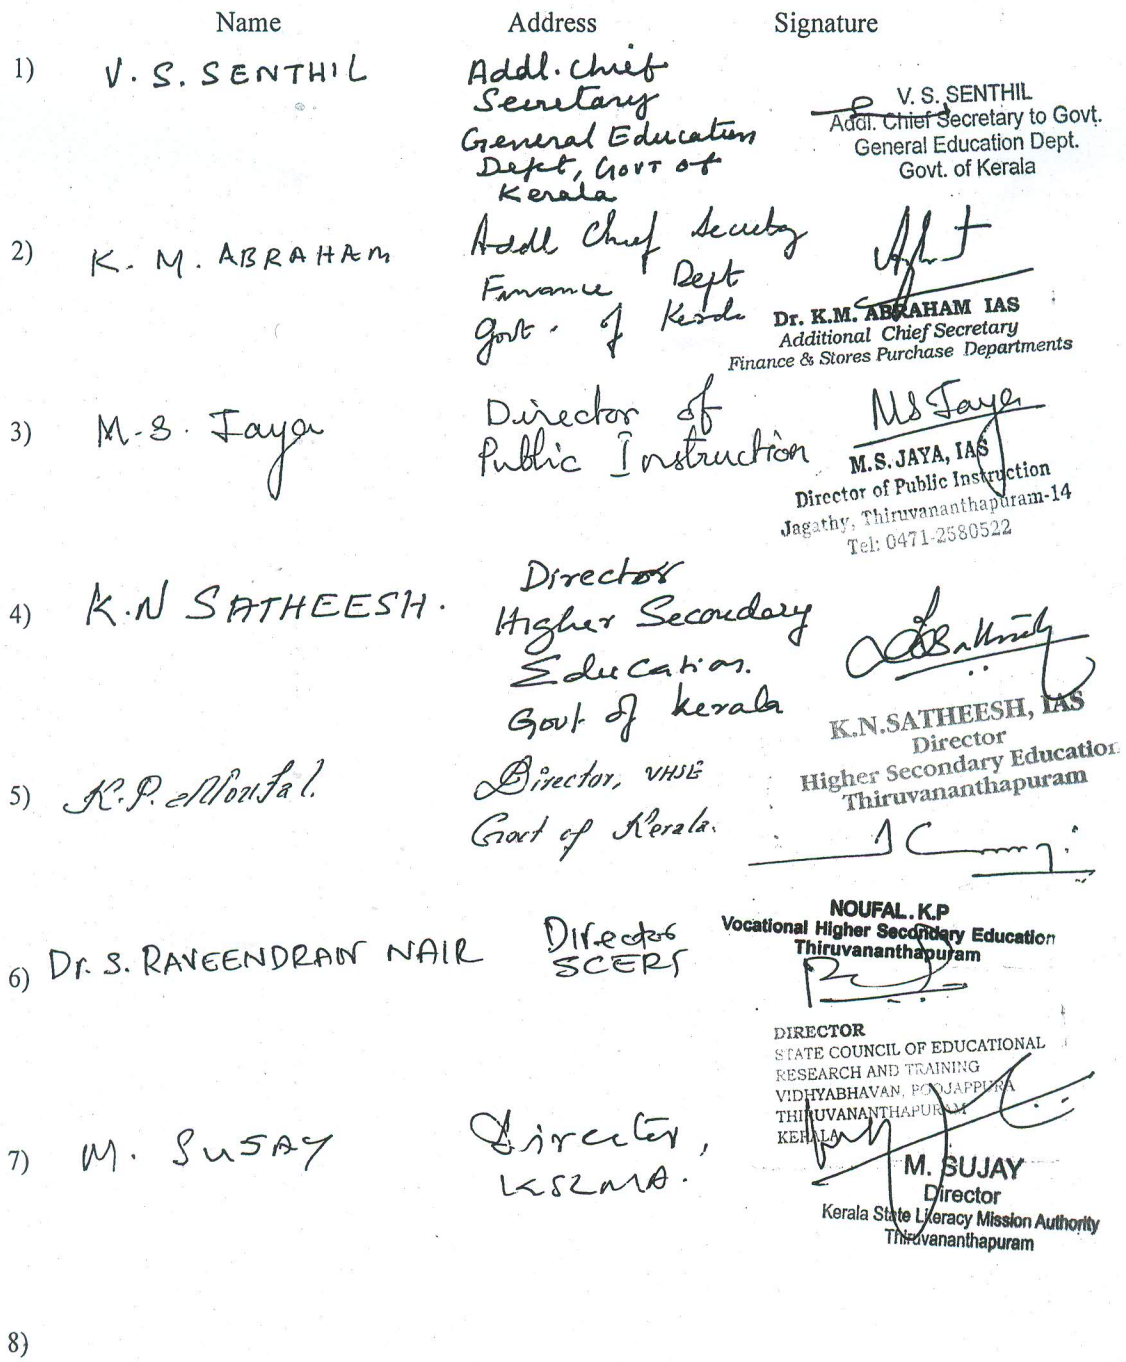 Name Address Signature
1) V. S. SENTHIL
Addl. Chief
Secretary
General Education
Dept, Govt of
Kerala
V. S. SENTHIL
Addl. Chief Secretary to Govt.
General Education Dept.
Govt. of Kerala
2) K. M. ABRAHAM
Addl Chief Secretary
Finance Dept
Govt. of Kerala
Dr. K.M. ABRAHAM IAS
Additional Chief Secretary
Finance & Stores Purchase Departments
3) M.S. Jaya
Director of
Public Instruction
MS Jaya
M.S. JAYA, IAS
Director of Public Instruction
Jagathy, Thiruvananthapuram-14
Tel: 0471-2580522
4) K.N SATHEESH.
Director
Higher Secondary
Education.
Govt of Kerala
K.N.SATHEESH, IAS
Director
Higher Secondary Education
Thiruvananthapuram
5) K.P. Noufal.
Director, VHSE
Govt of Kerala.
NOUFAL.K.P
Vocational Higher Secondary Education
Thiruvananthapuram
6) Dr. S. RAVEENDRAN NAIR
Director
SCERT
DIRECTOR
STATE COUNCIL OF EDUCATIONAL
RESEARCH AND TRAINING
VIDHYABHAVAN, POOJAPPURA
THIRUVANANTHAPURAM
KERALA
7) M. SUJAY
Director,
KSLMA.
M. SUJAY
Director
Kerala State Literacy Mission Authority
Thiruvananthapuram
8)